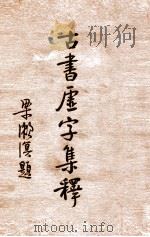 古書虛字集釋
梁漱溟題
mtoou.info  mtoou.info